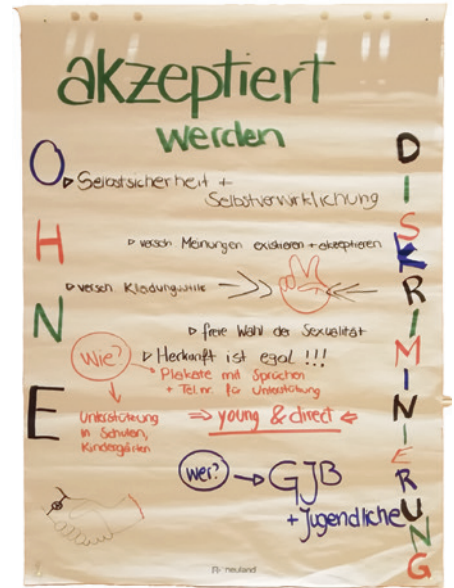 akzeptiert
werden
OHNE
DISKRIMINIERUNG
▹ Selbstsicherheit +
Selbstverwirklichung
▹ versch Meinungen existieren + akzeptieren
▹ versch Kleidungsstile
▹ freie Wahl der Sexualität
▹ Herkunft ist egal !!!
Wie?
Plakate mit Sprüchen
+ Tel.nr. für Unterstützung
Unterstützung
in Schulen,
Kindergärten
⇒ young & direct ⇐
wer? → GJB
+ Jugendliche
neuland